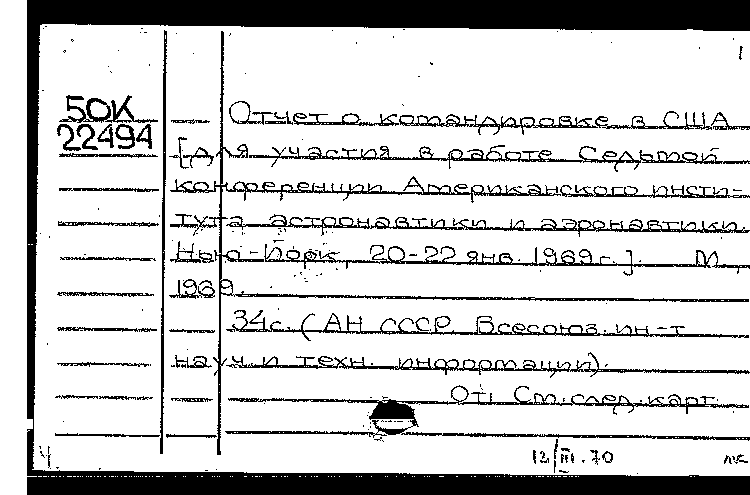 1
50К
22494
Отчет о командировке в США
[для участия в работе Седьмой
конференции Американского инсти-
тута астронавтики и аэронавтики.
Нью-Йорк, 20-22 янв. 1969г.]. М.,
1969.
34с. (АН СССР. Всесоюз. ин-т
науч. и техн. информации).
См. след. карт.
Ч
12/III.70